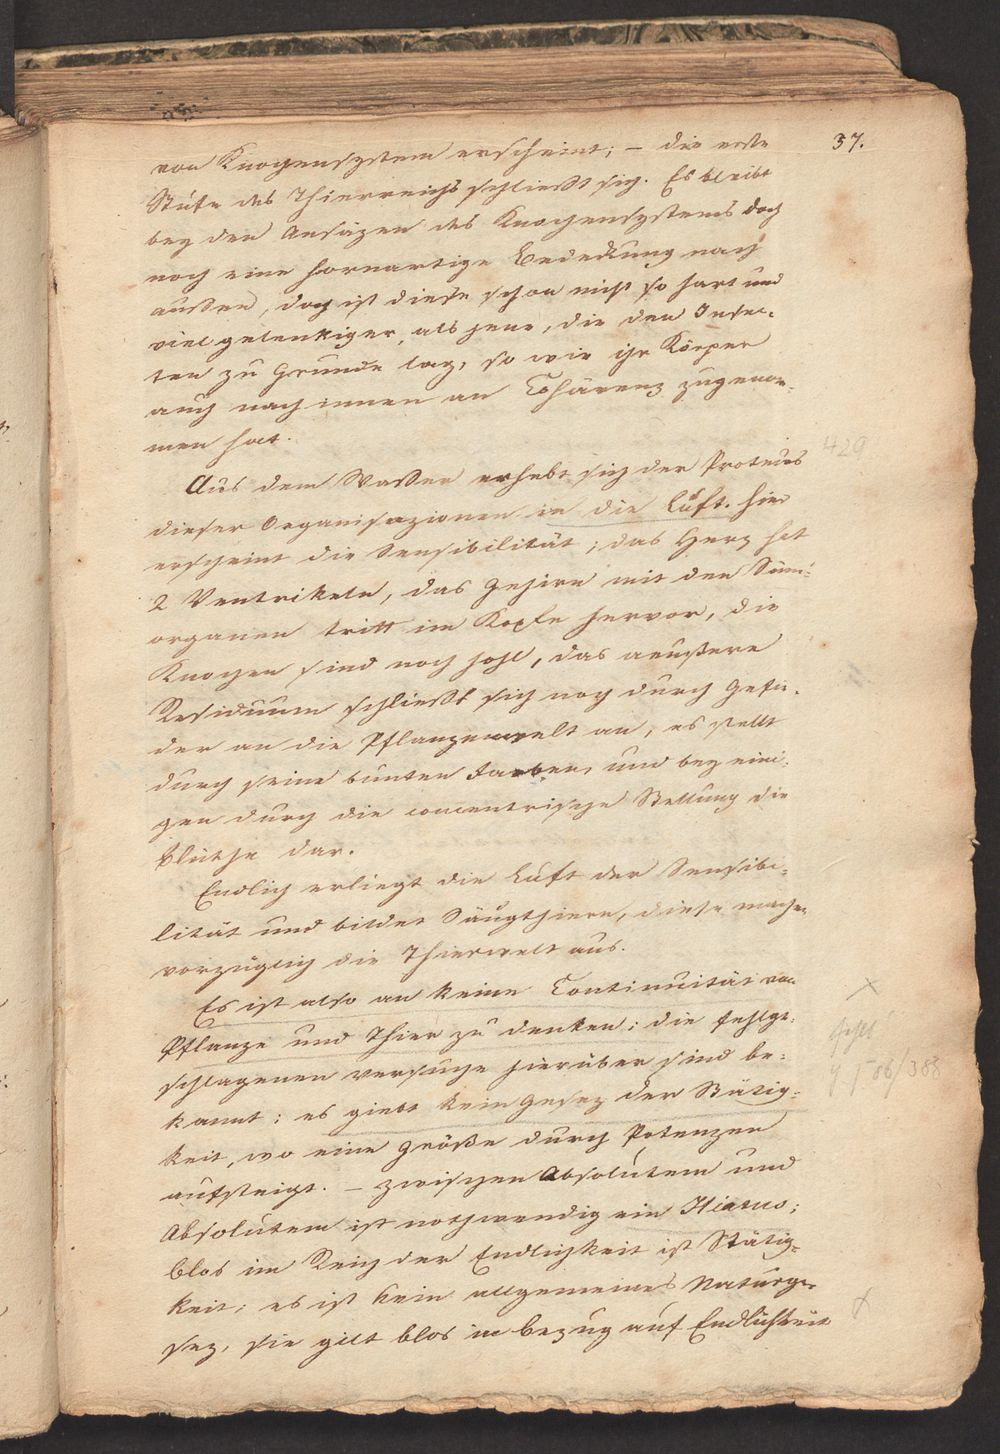 37.
von Knochensystem erscheint; – die erste
Stufe des Thierreichs schließt sich. Es bleibt
bey den Ansäzen des Knochensystems doch
noch eine hornartige Bedeckung nach
aussen, doch ist diese schon nicht so hart und
viel gelenkiger, als jene, die den Insec-
ten zu Grunde lag, so wie ihr Körper
auch nach innen an Cohärenz zugenom-
men hat.
429
Aus dem Wasser erhebt sich der Proteus
dieser Organisazionen in die Luft. Hier
erscheint die Sensibilität; das Herz hat
2 Ventrikeln, das Gehirn mit den Sinn-
organen tritt im Kopfe hervor, die
Knochen sind noch hohl, das aeußere
Residuum schließt sich noch durch Gefie-
der an die Pflanzenwelt an, es stellt
durch seine bunten Farben, und bey eini-
gen durch die concentrische Stellung die
Blüthe dar.
Endlich erliegt die Luft der Sensibi-
lität und bildet Säugthiere, diese machen
vorzüglich die Thierwelt aus.
Es ist also an keine Continuität von
Pflanze und Thier zu denken; die fehlge-
schlagenen Versuche hierüber sind be-
kannt; es giebt kein Gesez der Stätig-
keit, wo eine Größe durch Potenzen
aufsteigt. – zwischen Absolutem und
Absolutem ist nothwendig ein Hiatus;
blos im Reich der Endlichkeit ist Stätig-
keit; es ist kein allgemeines Naturge-
sez, sie gilt blos in bezug auf Endlichkeit